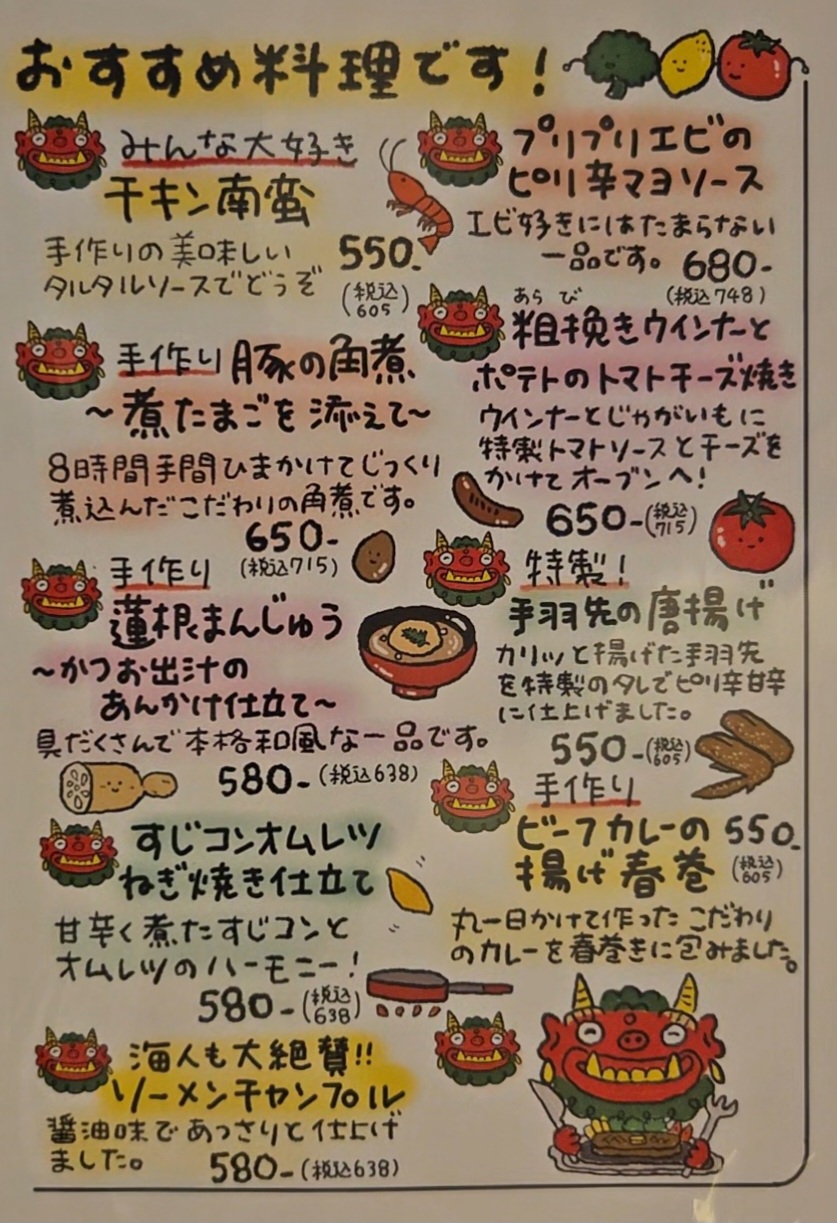 おすすめ料理です!
みんな大好き
チキン南蛮
手作りの美味しい
タルタルソースでどうぞ
550-
(税込
605)
手作り豚の角煮
~煮たまごを添えて~
8時間手間ひまかけてじっくり
煮込んだこだわりの角煮です。
650-
(税込715)
手作り
蓮根まんじゅう
~かつお出汁の
あんかけ仕立て~
具だくさんで本格和風な一品です。
580-(税込638)
すじコンオムレツ
ねぎ焼き仕立て
甘辛く煮たすじコンと
オムレツのハーモニー!
580-(税込
638)
海人も大絶賛!!
ソーメンチャンプル
醤油味であっさりと仕上げ
ました。 580-(税込638)
プリプリエビの
ピリ辛マヨソース
エビ好きにはたまらない
一品です。 680-
(税込748)
あら び
粗挽きウインナーと
ポテトのトマトチーズ焼き
ウインナーとじゃがいもに
特製トマトソースとチーズを
かけてオーブンへ!
650-(税込
715)
特製!
手羽先の唐揚げ
カリッと揚げた手羽先
を特製のタレでピリ辛甘辛
に仕上げました。
550-(税込
605)
手作り
ビーフカレーの 550-
揚げ春巻 (税込
605)
丸一日かけて作ったこだわり
のカレーを春巻きに包みました。